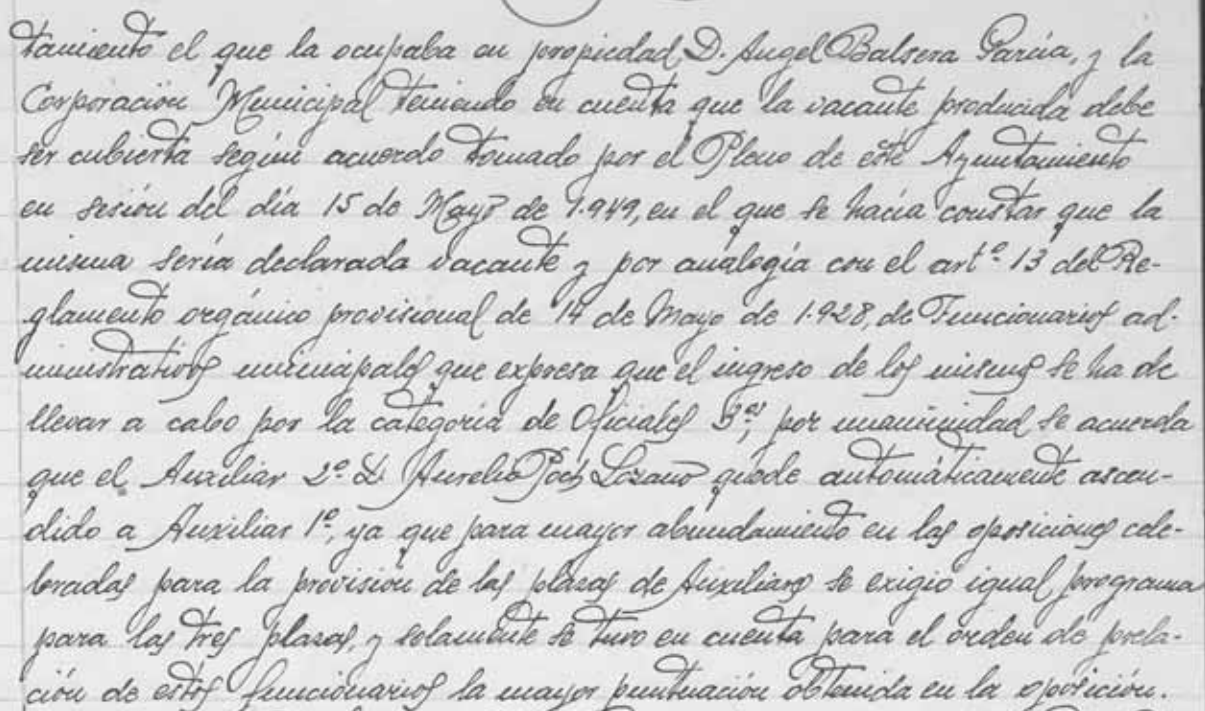 tamiento el que la ocupaba en propiedad D. Angel Balsera García, y la
Corporación Municipal teniendo en cuenta que la vacante producida debe
ser cubierta según acuerdo tomado por el Pleno de este Ayuntamiento
en sesión del día 15 de Mayo de 1.949, en el que se hacía constar que la
misma sería declarada vacante y por analogía con el artº 13 del Re-
glamento orgánico provisional de 14 de Mayo de 1.928, de Funcionarios ad-
ministrativos municipales que expresa que el ingreso de los mismos se ha de
llevar a cabo por la categoría de Oficiales 3ºˢ, por unanimidad se acuerda
que el Auxiliar 2º D. Aurelio Poch Lozano quede automáticamente ascen-
dido a Auxiliar 1º, ya que para mayor abundamiento en las oposiciones cele-
bradas para la provisión de las plazas de Auxiliares se exigio igual programa
para las tres plazas, y solamente se tuvo en cuenta para el orden de prela-
ción de estos funcionarios la mayor puntuación obtenida en la oposición.